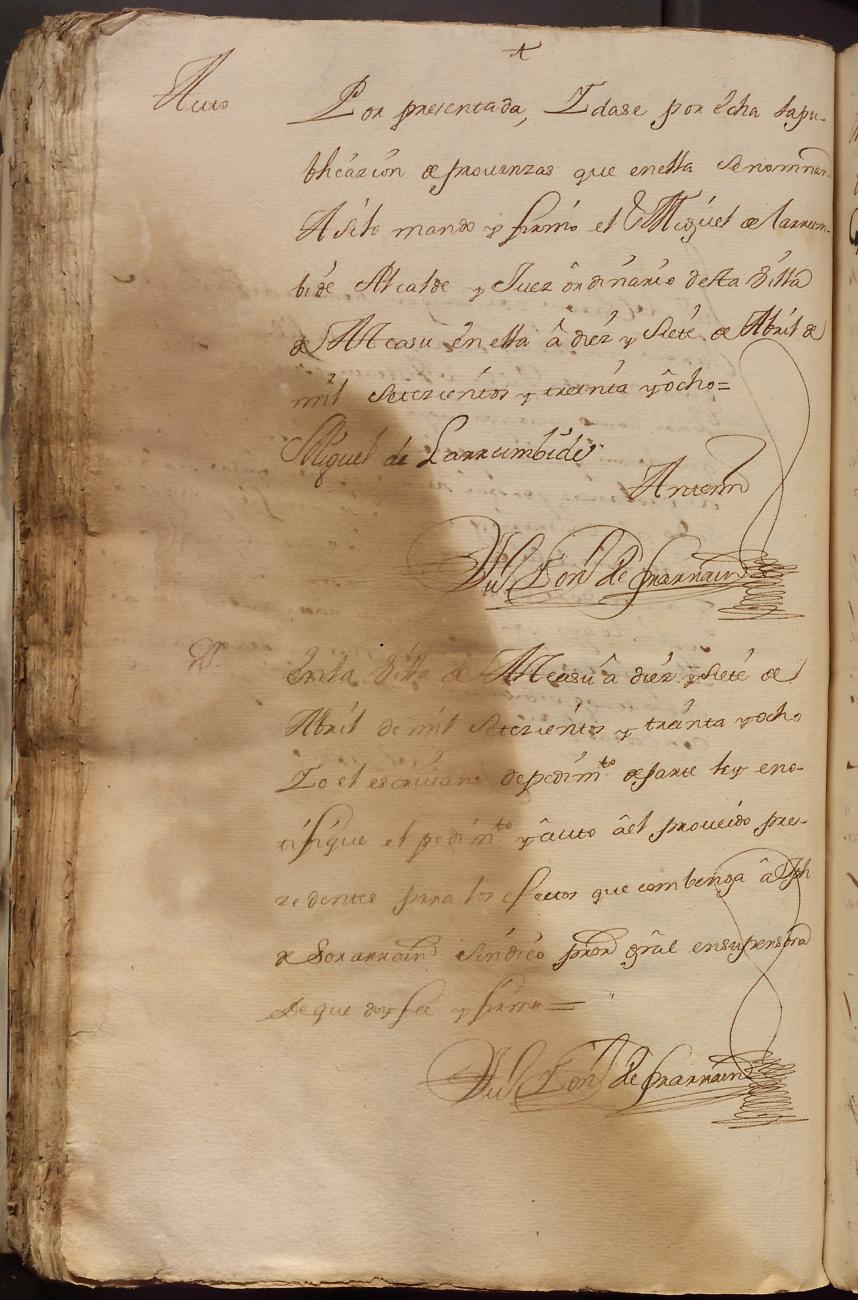 Auto
Por presentada, Y dase por êcha lapu-
blicazion de provanzas que enella Senominan
Asilo mando y firmó el Sr. Miguel de larrum-
bide Alcalde y Juez ôrdinario desta Villa
de Alcasu ênella â diez y Siete de Abril de
mil Setezientos y treinta yôcho=
Miguel de Larrumbide
Antemi
de Ynarrain
Enla Villa de Alcasu â diez y siete de
Abril de mil Setezientos y treinta yocho
Yo el escrivano depedimto de parte ley eno-
tifique el pedimto yâuto âel proveido pre-
zedentes para los efectos que combenga â Jph
de Sorarrain Sindico pror gral ensupersona
de que doy fee y firme=
de Ynarrain